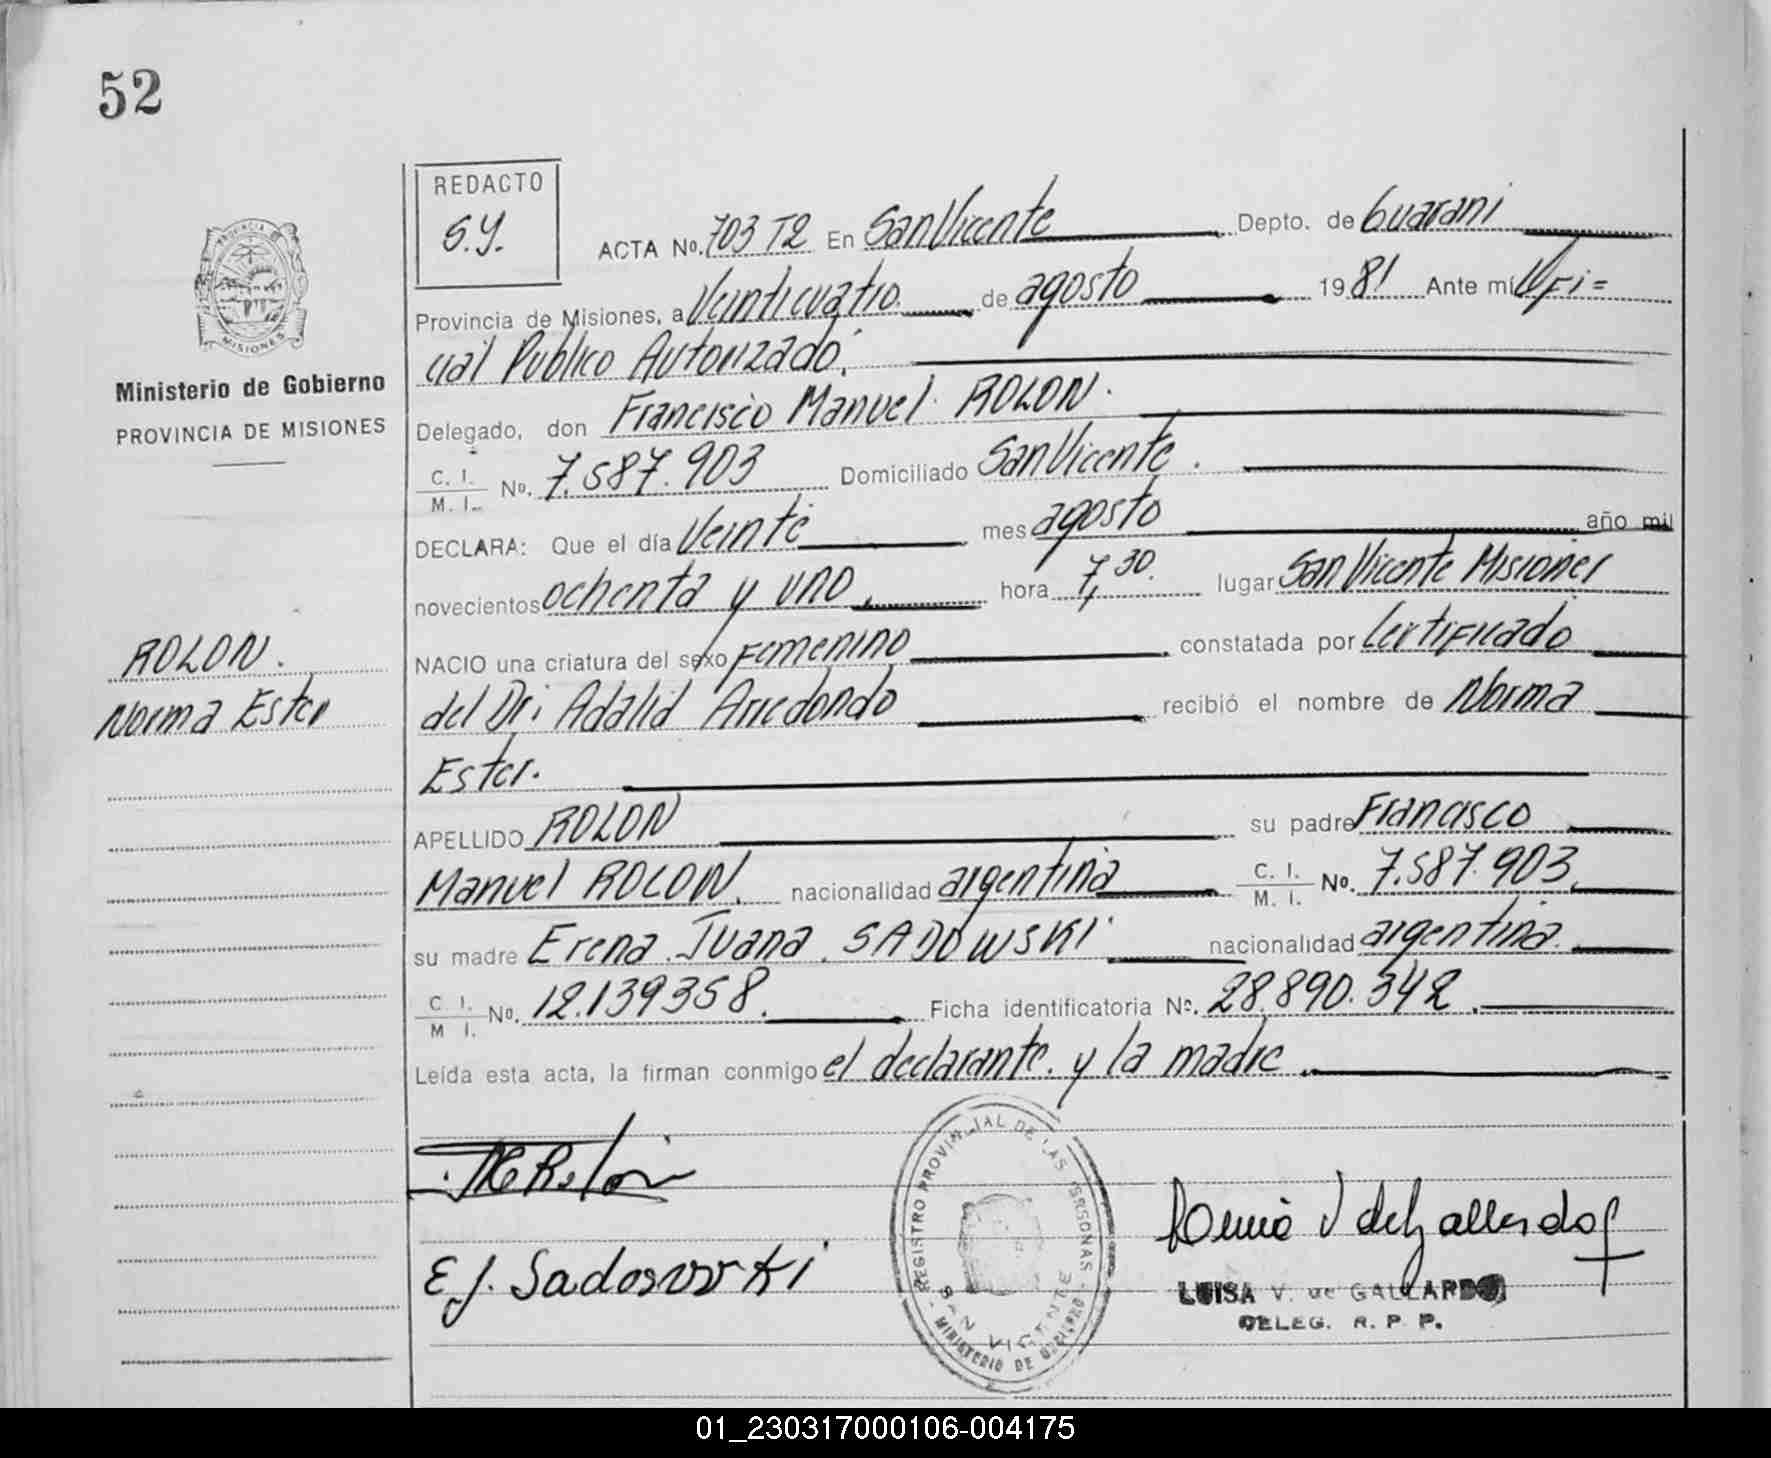 52
REDACTO
S.Y.
ACTA No. 703 T2 En San Vicente Depto. de Guarani
Provincia de Misiones, a Veinticuatro de agosto 1981 Ante mi Ofi=
cial Publico Autorizado.
Delegado, don Francisco Manuel ROLON.
C. I. / M. I. No. 7.587.903 Domiciliado San Vicente.
DECLARA: Que el día Veinte mes agosto año mil
novecientos ochenta y uno, hora 7,30. lugar San Vicente Misiones
NACIO una criatura del sexo Femenino constatada por Certificado
del Dr: Adalid Arredondo recibió el nombre de Norma
Ester.
APELLIDO ROLON su padre Francisco
Manuel ROLON, nacionalidad argentina C. I. / M. I. No. 7.587.903,
su madre Erena Juana SADOWSKI nacionalidad argentina.
C I. / M I. No. 12.139358. Ficha identificatoria No. 28.890.342.
Leída esta acta, la firman conmigo el declarante y la madre.
PROVINCIA DE
MISIONES
Ministerio de Gobierno
PROVINCIA DE MISIONES
ROLON.
Norma Ester
Rolon
E J. Sadowski
REGISTRO PROVINCIAL DE LAS PERSONAS
SAN VICENTE
MINISTERIO DE GOBIERNO
V de Gallardo
LUISA V. de GALLARDO
DELEG. R. P. P.
01_230317000106-004175